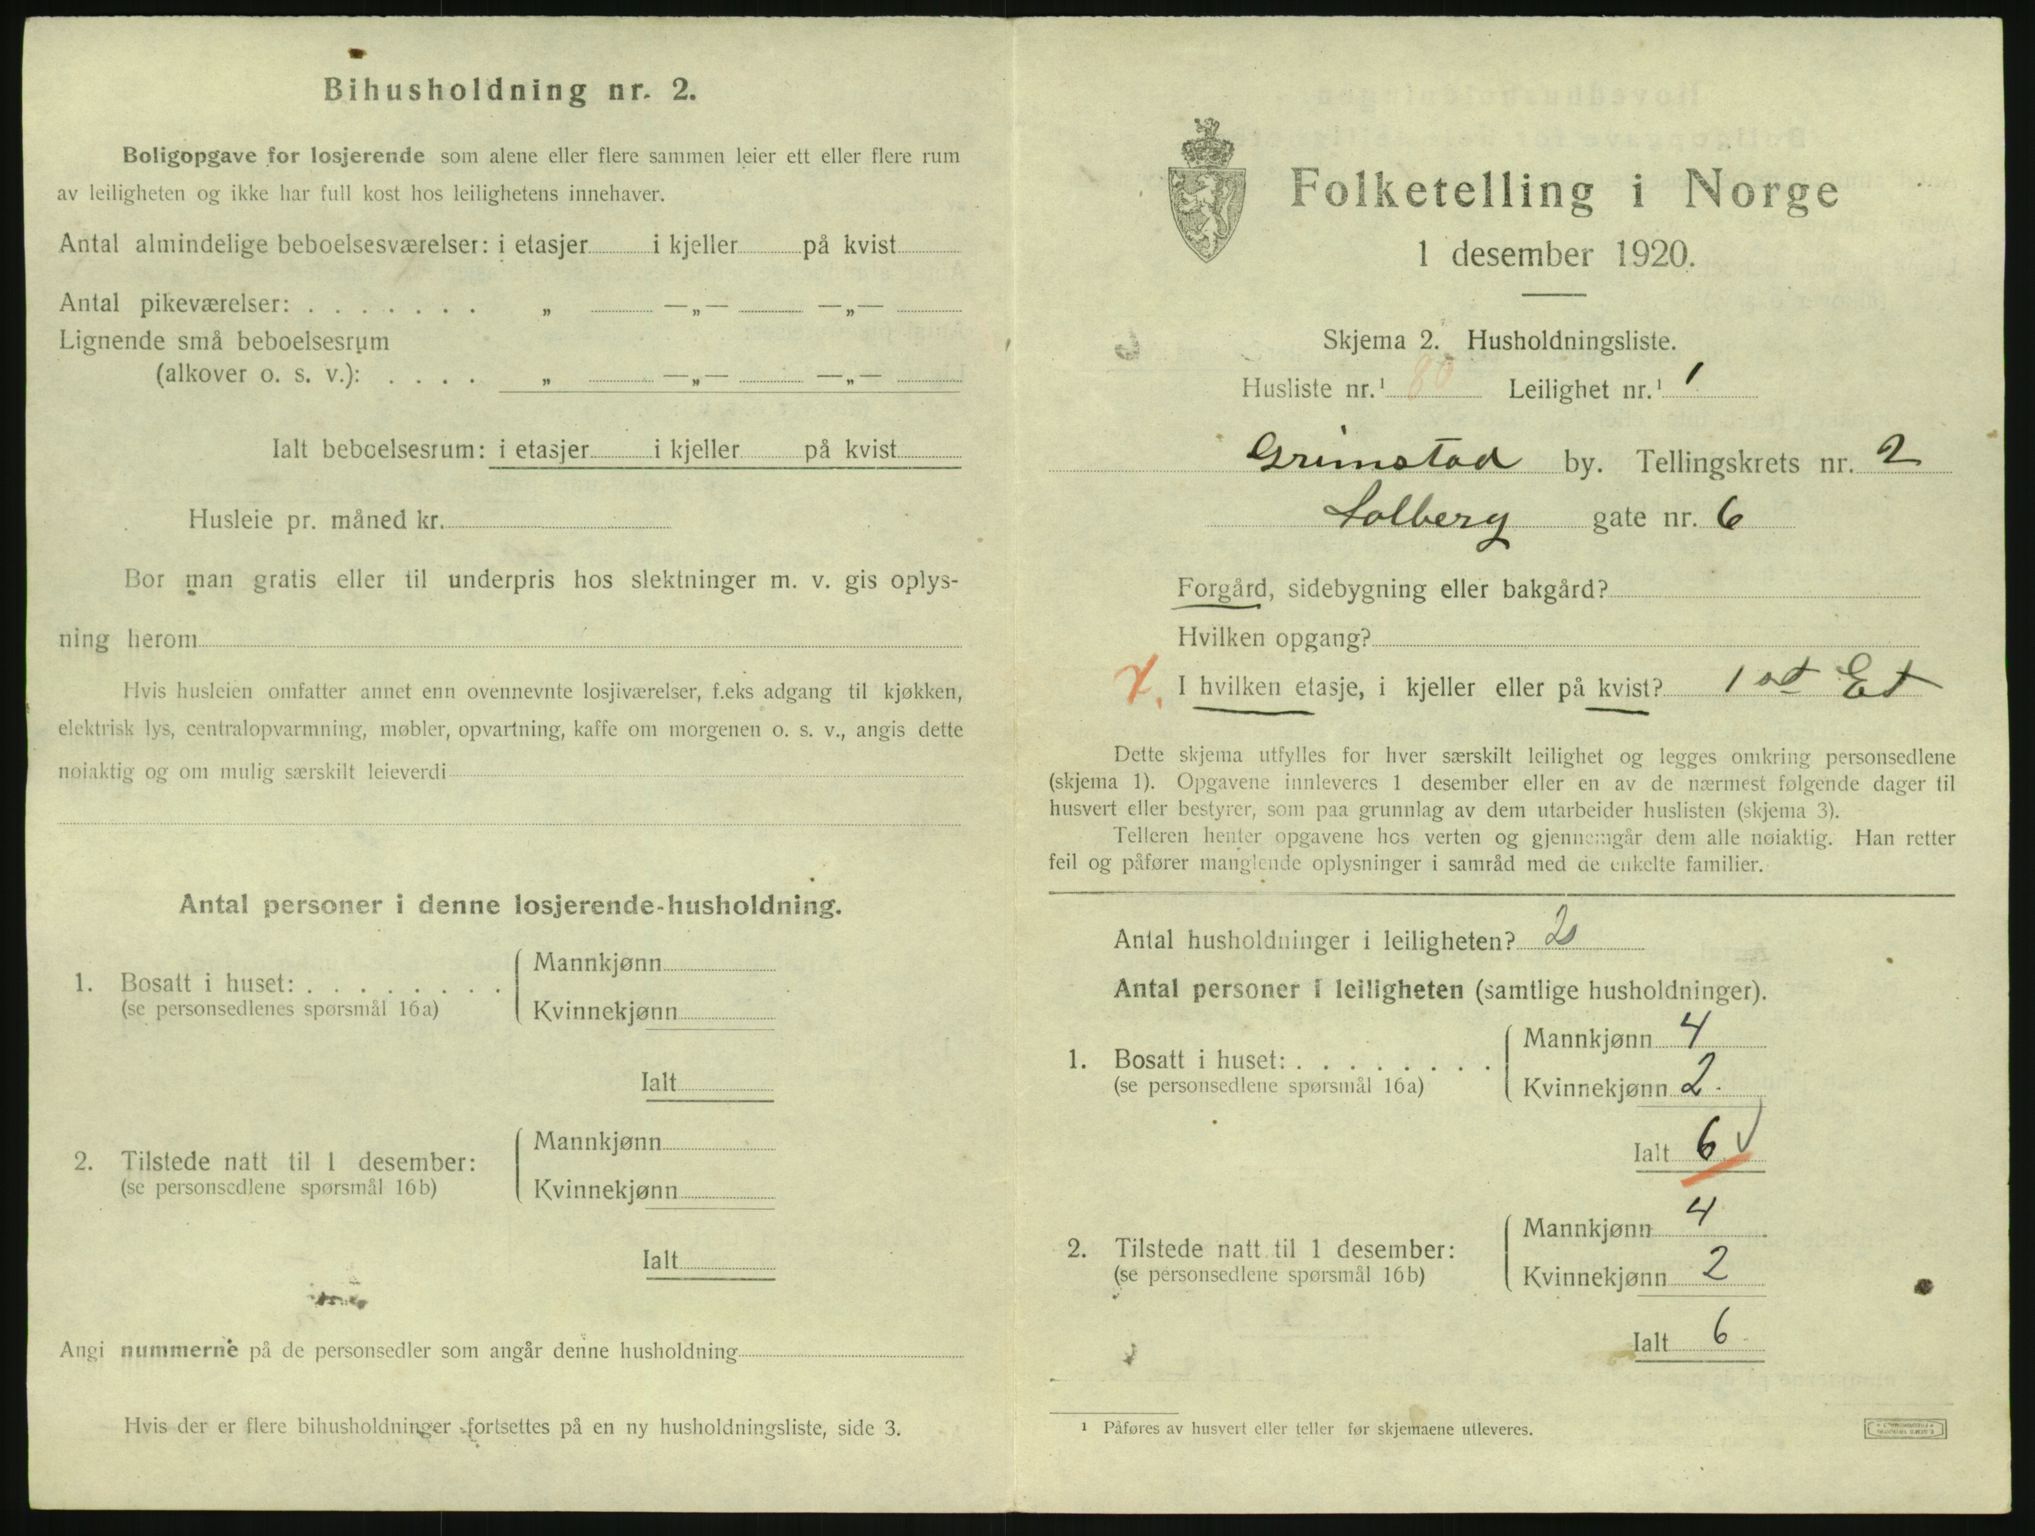 Bihusholdning nr. 2.
Boligopgave for losjerende som alene eller flere sammen leier ett eller flere rum
av leiligheten og ikke har full kost hos leilighetens innehaver.
Antal almindelige beboelsesværelser: i etasjer i kjeller på kvist
Antal pikeværelser: . . . . . . . „ —„— —„—
Lignende små beboelsesrum
(alkover o. s. v.): . . . . „ —„— —„—
Ialt beboelsesrum: i etasjer i kjeller på kvist
Husleie pr. måned kr.
Bor man gratis eller til underpris hos slektninger m. v. gis oplys-
ning herom
Hvis husleien omfatter annet enn ovennevnte losjiværelser, f.eks adgang til kjøkken,
elektrisk lys, centralopvarmning, møbler, opvartning, kaffe om morgenen o. s. v., angis dette
nøiaktig og om mulig særskilt leieverdi
Antal personer i denne losjerende-husholdning.
1. Bosatt i huset: . . . . . . . . Mannkjønn
(se personsedlenes spørsmål 16a) Kvinnekjønn
Ialt
2. Tilstede natt til 1 desember: Mannkjønn
(se personsedlene spørsmål 16b) Kvinnekjønn
Ialt
Angi nummerne på de personsedler som angår denne husholdning
Hvis der er flere bihusholdninger fortsettes på en ny husholdningsliste, side 3.
Folketelling i Norge
1 desember 1920.
Skjema 2. Husholdningsliste.
Husliste nr.¹ 80 Leilighet nr.¹ 1
Grimstad by. Tellingskrets nr. 2
Solberg gate nr. 6
Forgård, sidebygning eller bakgård?
Hvilken opgang?
I hvilken etasje, i kjeller eller på kvist? 1 st Et
Dette skjema utfylles for hver særskilt leilighet og legges omkring personsedlene
(skjema 1). Opgavene innleveres 1 desember eller en av de nærmest følgende dager til
husvert eller bestyrer, som paa grunnlag av dem utarbeider huslisten (skjema 3).
Telleren henter opgavene hos verten og gjennemgår dem alle nøiaktig. Han retter
feil og påfører manglende oplysninger i samråd med de enkelte familier.
Antal husholdninger i leiligheten? 2
Antal personer i leiligheten (samtlige husholdninger).
1. Bosatt i huset: . . . . . . . . Mannkjønn 4
(se personsedlene spørsmål 16a) Kvinnekjønn 2
Ialt 6
2. Tilstede natt til 1 desember: Mannkjønn 4
(se personsedlene spørsmål 16b) Kvinnekjønn 2
Ialt 6
¹ Påføres av husvert eller teller før skjemaene utleveres.